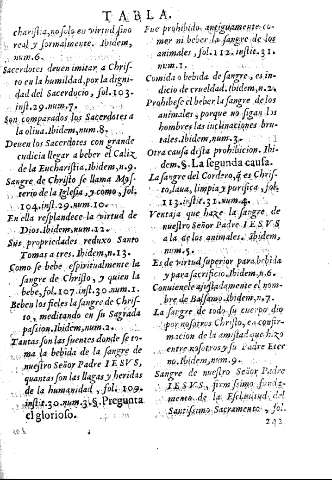 TABLA.
charistia, no solo en virtud sino
real y formalmente. Ibidem,
num.6.
Sacerdotes deuen imitar a Chris-
to en la humildad, por la digni-
dad del Sacerdocio, fol.103.
inst.29.num.7.
Son comparados los Sacerdotes a
la oliua. Ibidem, num.8.
Deuen los Sacerdotes con grande
cudicia llegar a beber el Caliz
de la Eucharistia. Ibidem, n.9.
Sangre de Christo se llama Mys-
terio de la Iglesia, y como, fol.
104.inst.29.num.10.
En ella resplandece la virtud de
Dios. Ibidem, num.12.
Sus propriedades reduxo Santo
Tomas a tres. Ibidem, n.13.
Como se bebe espiritualmente la
sangre de Christo, y quien la
bebe, fol.107.inst.30.num.1.
Beben los fieles la sangre de Chris-
to, meditando en su Sagrada
passion. Ibidem, num.2.
Tantas son las fuentes donde se to-
ma la bebida de la sangre de
nuestro Señor Padre IESVS,
quantas son las llagas y heridas
de la humanidad, fol. 109.
inst.30.num.3.§. Pregunta
el glorioso.
Fue prohibido antiguamente co-
mer ni beber la sangre de los
animales, fol.112.instic.31.
num.1.
Comida o bebida de sangre, es in-
dicio de crueldad. Ibidem, n.2.
Prohibese el beber la sangre de los
animales, porque no sigan los
hombres las inclinaciones bru-
tales. Ibidem, num.3.
Otra causa desta prohibicion. Ibi-
dem, §. La segunda causa.
La sangre del Cordero, q̃ es Chris-
to, laua, limpia y purifica, fol.
113.instit.31.num.4.
Ventaja que haze la sangre de
nuestro Señor Padre IESVS
a la de los animales. Ibidem,
num.5.
Es de virtud superior para bebida
y para sacrificio. Ibidem, n.6.
Conuienele ajustadamente el nom-
bre de Balsamo. Ibidem, n.7.
La sangre de todo su cuerpo dio
por nosotros Christo, en confir-
macion de la amistad que hizo
entre nosotros y su Padre Eter
no. Ibidem, num.9.
Sangre de nuestro Señor Padre
IESVS, firmissimo funda-
mento de la Esclauitud del
Santissimo Sacramento, fol.
292